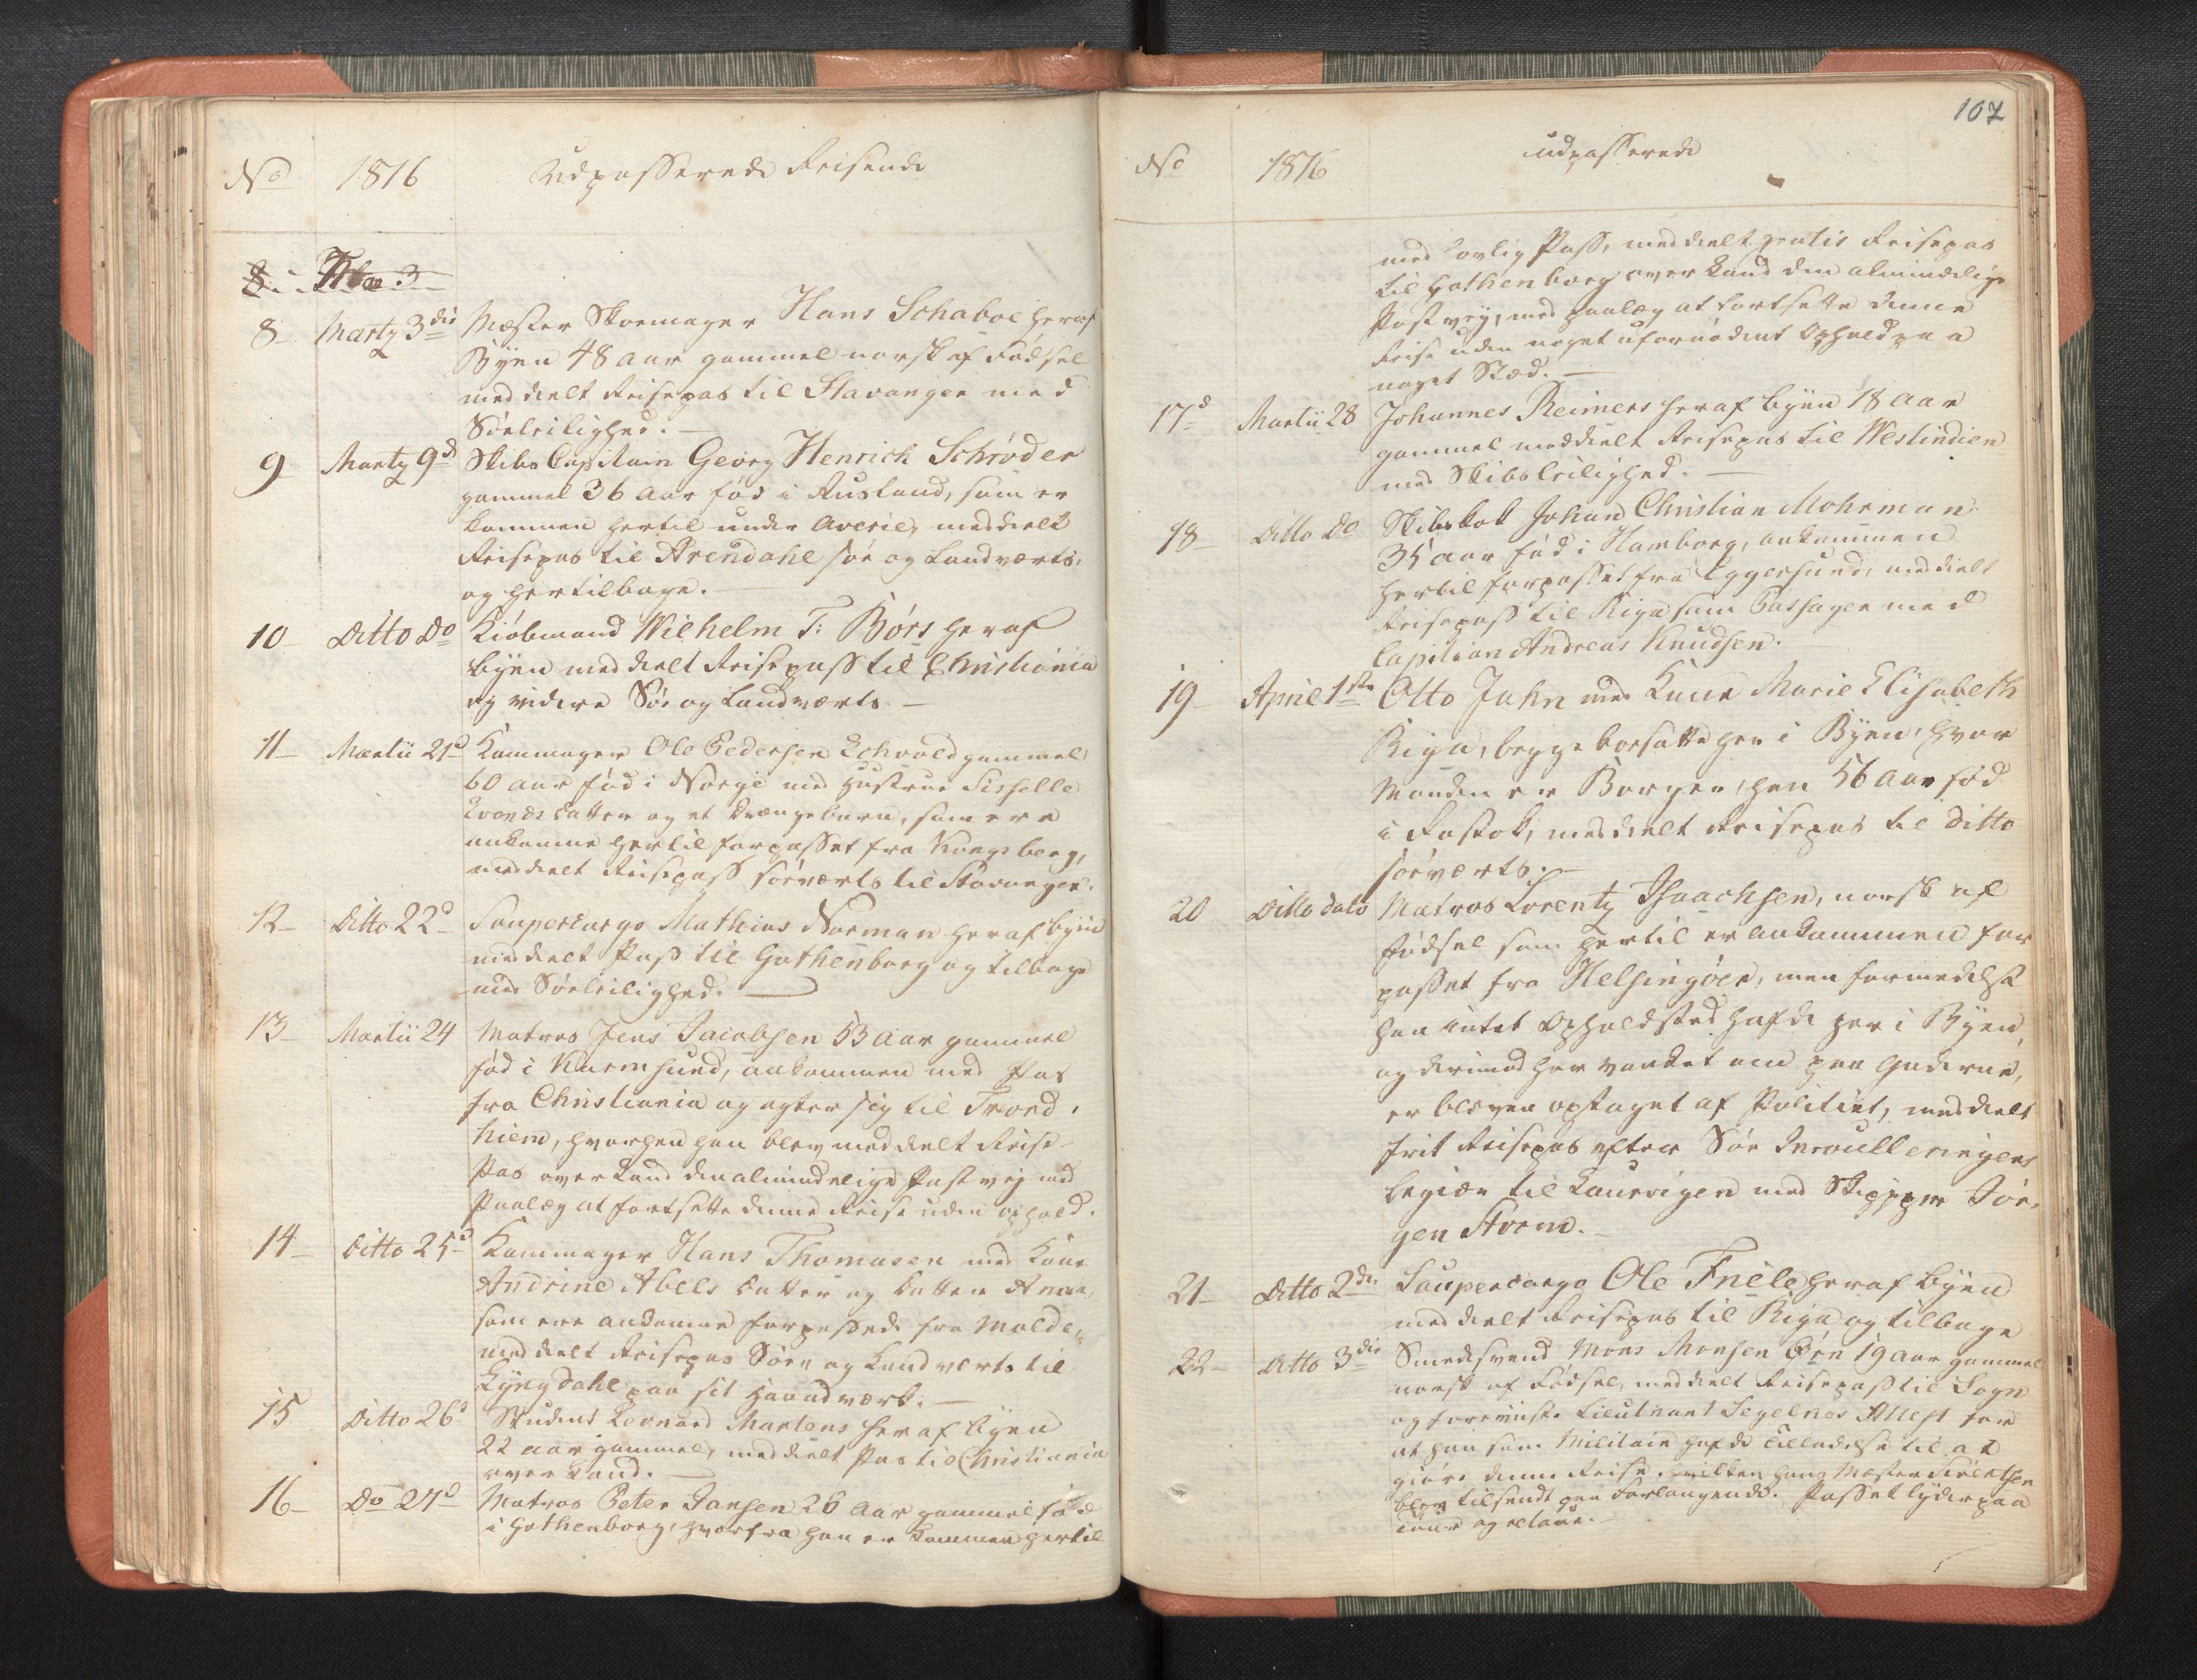 No 1816 Udpasserede Reisende
8 Martz 3die Mester Skoemager Hans Schaboe heraf
Byen 48 aar gammel norsk af Fødsel
meddeelt Reisepas til Stavanger med
Søeleilighed. —
9 Martz 9d Skibs Capitain Georg Henrich Schrøder
gammel 36 aar fød i Rusland, som er
kommen hertil under Averie, meddeelt
Reisepas til Arendahl søe og Landværts,
og hertilbage. —
10 Ditto Do Kiøbmand Wilhelm F: Børs heraf
byen meddeelt Reisepass til Christiania
og videre Søe og Landværts —
11 Martii 21d Kammager Ole Pedersen gammel
60 aar fød i Norge med Hustrue Sisselle
datter og et drængebarn, som ere
ankomne hertil forpasset fra Kongsberg,
meddeelt Reisepass søeværts til Stavanger.
12 Ditto 22d Soupercargo Mathias Norman heraf byen
meddeelt Pass til Gothenborg og tilbage
med Søeleilighed. —
13 Martii 24 Matros Jens Jacobsen 53 aar gammel
fød i Karmsund, ankommen med Pas
fra Christiania og agter sig til Trond,
hiem, hvorhen han blev meddeelt Reise-
Pas over Land den almindelige Postvej med
Paalæg at fortsætte denne Reise uden ophold.
14 Ditto 25d Kammager Hans Thomasen med Kone
Andrine Abels datter og datter Anne,
som ere ankomne forpassede fra Molde,
meddeelt Reisepas Søe og Landværts til
Lyngdahl paa sit Haandværk. —
15 Ditto 26d Student Leonard Martens heraf byen
22 aar gammel, meddeelt Pas til Christiania
over Land. —
16 Do 27d Matros Peter Jansen 26 aar gammel fød
i Gothenborg, hvorfra han er kommen hertil
107
No 1816 udpasserede
med lovlig Pass, meddeelt gratis Reisepas
til Gothenborg over Land den almindelige
Postvej, med paalæg at fortsætte denne
Reise uden noget ufornødent Ophold paa
noget Stæd. —
17d Martii 28 Johannes Reimers heraf byen 18 aar
gammel meddeelt Reisepas til Westindien
med Skibsleilighed. —
18 Ditto Do Skibskok Johan Christian Mohrman
35 aar fød i Hamborg, ankommen
hertil forpasset fra Eggersund, meddeelt
Reisepass til Riga som Passager med
Capitian Andreas Knudsen.
19 April 1ste Otto Jahn med Kone Marie Elisabeth
Riga, begge bosatte her i Byen, hvor
Manden er Borger, han 56 aar fød
i Rostok, meddeelt Reisepas til ditto
søeværts. —
20 Ditto dato Matros Lorentz Isaachsen, norsk af
fødsel som hertil er ankommen for
passet fra Helsingøer, men formedelst
han intet Opholdsted hafde her i Byen,
og derimod her vanket om paa Gaderne,
er bleven optaget af Politiet, meddeelt
frit Reisepas efter Søe Inroulleringens
begiær til Laurvigen med Skipper Jør,
gen Storm. —
21 Ditto 2den Soupercargo Ole Friele heraf byen
meddeelt Reisepas til Riga og tilbage
22 Ditto 3die Smedesvend Mons Monsen 19 aar gammel
norsk af Fødsel, meddeelt Reisepass til Sogn
og foreviiste Lieutnant Segelnes Attest for
at han som Militair hafde Tilladelse til at
giøre denne Reise, hvilken hans Mester
blev tilsendt paa Forlangende. Passet lyder paa